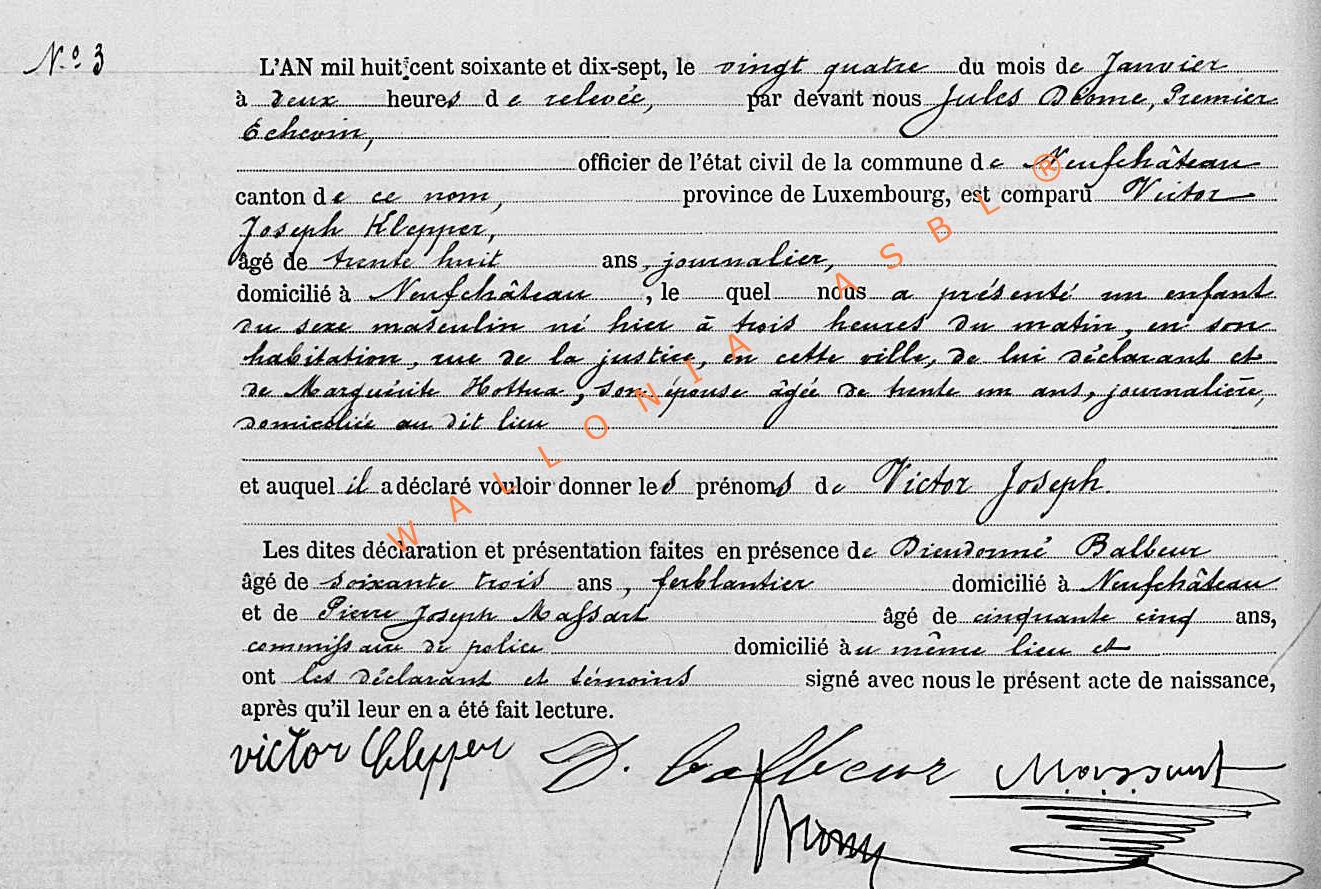 N.o 3
L'AN mil huit cent soixante et dix-sept, le vingt quatre du mois de Janvier
à deux heures de relevée, par devant nous Jules Diome, Premier
Echevin,
officier de l'état civil de la commune de Neufchâteau
canton de ce nom, province de Luxembourg, est comparu Victor
Joseph Klepper,
âgé de trente huit ans, journalier,
domicilié à Neufchâteau, le quel nous a présenté un enfant
du sexe masculin né hier à trois heures du matin, en son
habitation, rue de la justice, en cette ville, de lui déclarant et
de Marguérite Hottua, son épouse âgée de trente un ans, journalière,
domiciliée au dit lieu
et auquel il a déclaré vouloir donner les prénoms de Victor Joseph.
Les dites déclaration et présentation faites en présence de Dieudonné Balbeur
âgé de soixante trois ans, ferblantier domicilié à Neufchâteau
et de Pierre Joseph Massart âgé de cinquante cinq ans,
commissaire de police domicilié au même lieu et
ont les déclarant et témoins signé avec nous le présent acte de naissance,
après qu'il leur en a été fait lecture.
victor Clepper D. balbeur Massart
WALLONIA ASBL ®